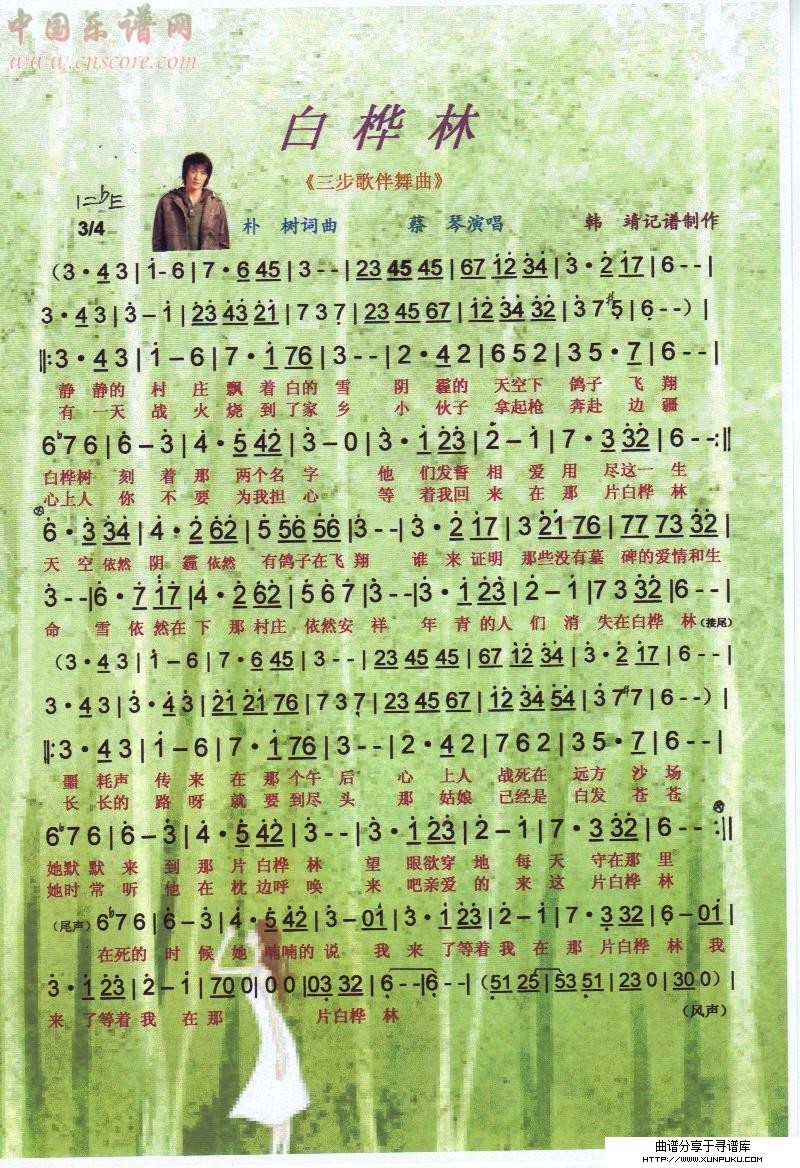 中国乐谱网
www.cnscore.com
白桦林
《三步歌伴舞曲》
1=♭E
3/4
朴 树词曲 蔡 琴演唱 韩 靖记谱制作
(3·4 3 | 1- 6 | 7·6 45 | 3 - - | 23 45 45 | 67 12 34 | 3·2 17 | 6 - - |
3·43 | 3 – 1 | 23 43 21 | 7 3 7 | 23 45 67 | 12 34 32 | 3 7 #5 | 6 - - ) |
‖:3·43 | 1 – 6 | 7·1 76 | 3 - - | 2·42 | 6 5 2 | 3 5·7 | 6 - - |
静 静的 村 庄 飘 着 白的 雪 阴 霾的 天空下 鸽子 飞 翔
有 一天 战 火 烧 到 了家 乡 小 伙子 拿起枪 奔赴 边 疆
6♭7 6 | 6 – 3 | 4·5 42 | 3 – 0 | 3·1 23 | 2 – 1 | 7·3 32 | 6 - -:‖
白桦树 刻 着 那 两个 名 字 他 们发誓 相 爱 用 尽这一 生
心上人 你 不 要 为我 担 心 等 着我回 来 在 那 片白桦 林
6·3 34 | 4·2 62 | 5 56 56 | 3 - - | 3·2 17 | 3 21 76 | 77 73 32 |
天 空 依然 阴 霾 依然 有鸽子在飞 翔 谁 来 证明 那些没有墓 碑的爱情和生
3 - - | 6·7 17 | 4·2 62 | 5 6 7 | 3 - - | 3·1 23 | 2 – 1 | 7 3 32 | 6 - - |
命 雪 依 然在 下 那 村庄 依然安 祥 年 青 的人 们 消 失在白桦 林(接尾)
(3·4 3 | 1 – 6 | 7·6 45 | 3 - - | 23 45 45 | 67 12 34 | 3·2 17 | 6 - - |
3·4 3 | 3·4 3 | 21 21 76 | 7 3 7 | 23 45 67 | 12 34 54 | 3 7 #7 | 6 - - ) |
‖:3·4 3 | 1 – 6 | 7·1 76 | 3 - - | 2·4 2 | 7 6 2 | 3 5·7 | 6 - - |
噩 耗声 传 来 在 那 个午 后 心 上人 战死在 远方 沙 场
长 长的 路 呀 就 要 到尽 头 那 姑娘 已经是 白发 苍 苍
6♭7 6 | 6 – 3 | 4·5 42 | 3 - - | 3·1 23 | 2 – 1 | 7·3 32 | 6 - - :‖
她默 默 来 到 那 片 白桦 林 望 眼欲穿 地 每 天 守在那 里
她时 常 听 他 在 枕 边呼 唤 来 吧亲爱 的 来 这 片白桦 林
(尾声) 6♭7 6 | 6 – 3 | 4·5 42 | 3 – 01 | 3·1 23 | 2 – 1 | 7·3 32 | 6 – 01 |
在死的 时 候 她 喃喃的 说 我 来 了等着 我 在 那 片白桦 林 我
3·1 23 | 2 – 1 | 70 0 | 0 0 | 03 32 | 6 - - | 6 - - | (51 25 | 53 51 | 23 0 | 30 0) |
来 了等着 我 在 那 片白桦 林 (风声)
曲谱分享于寻谱库
HTTP://WWW.XUNPUKU.COM